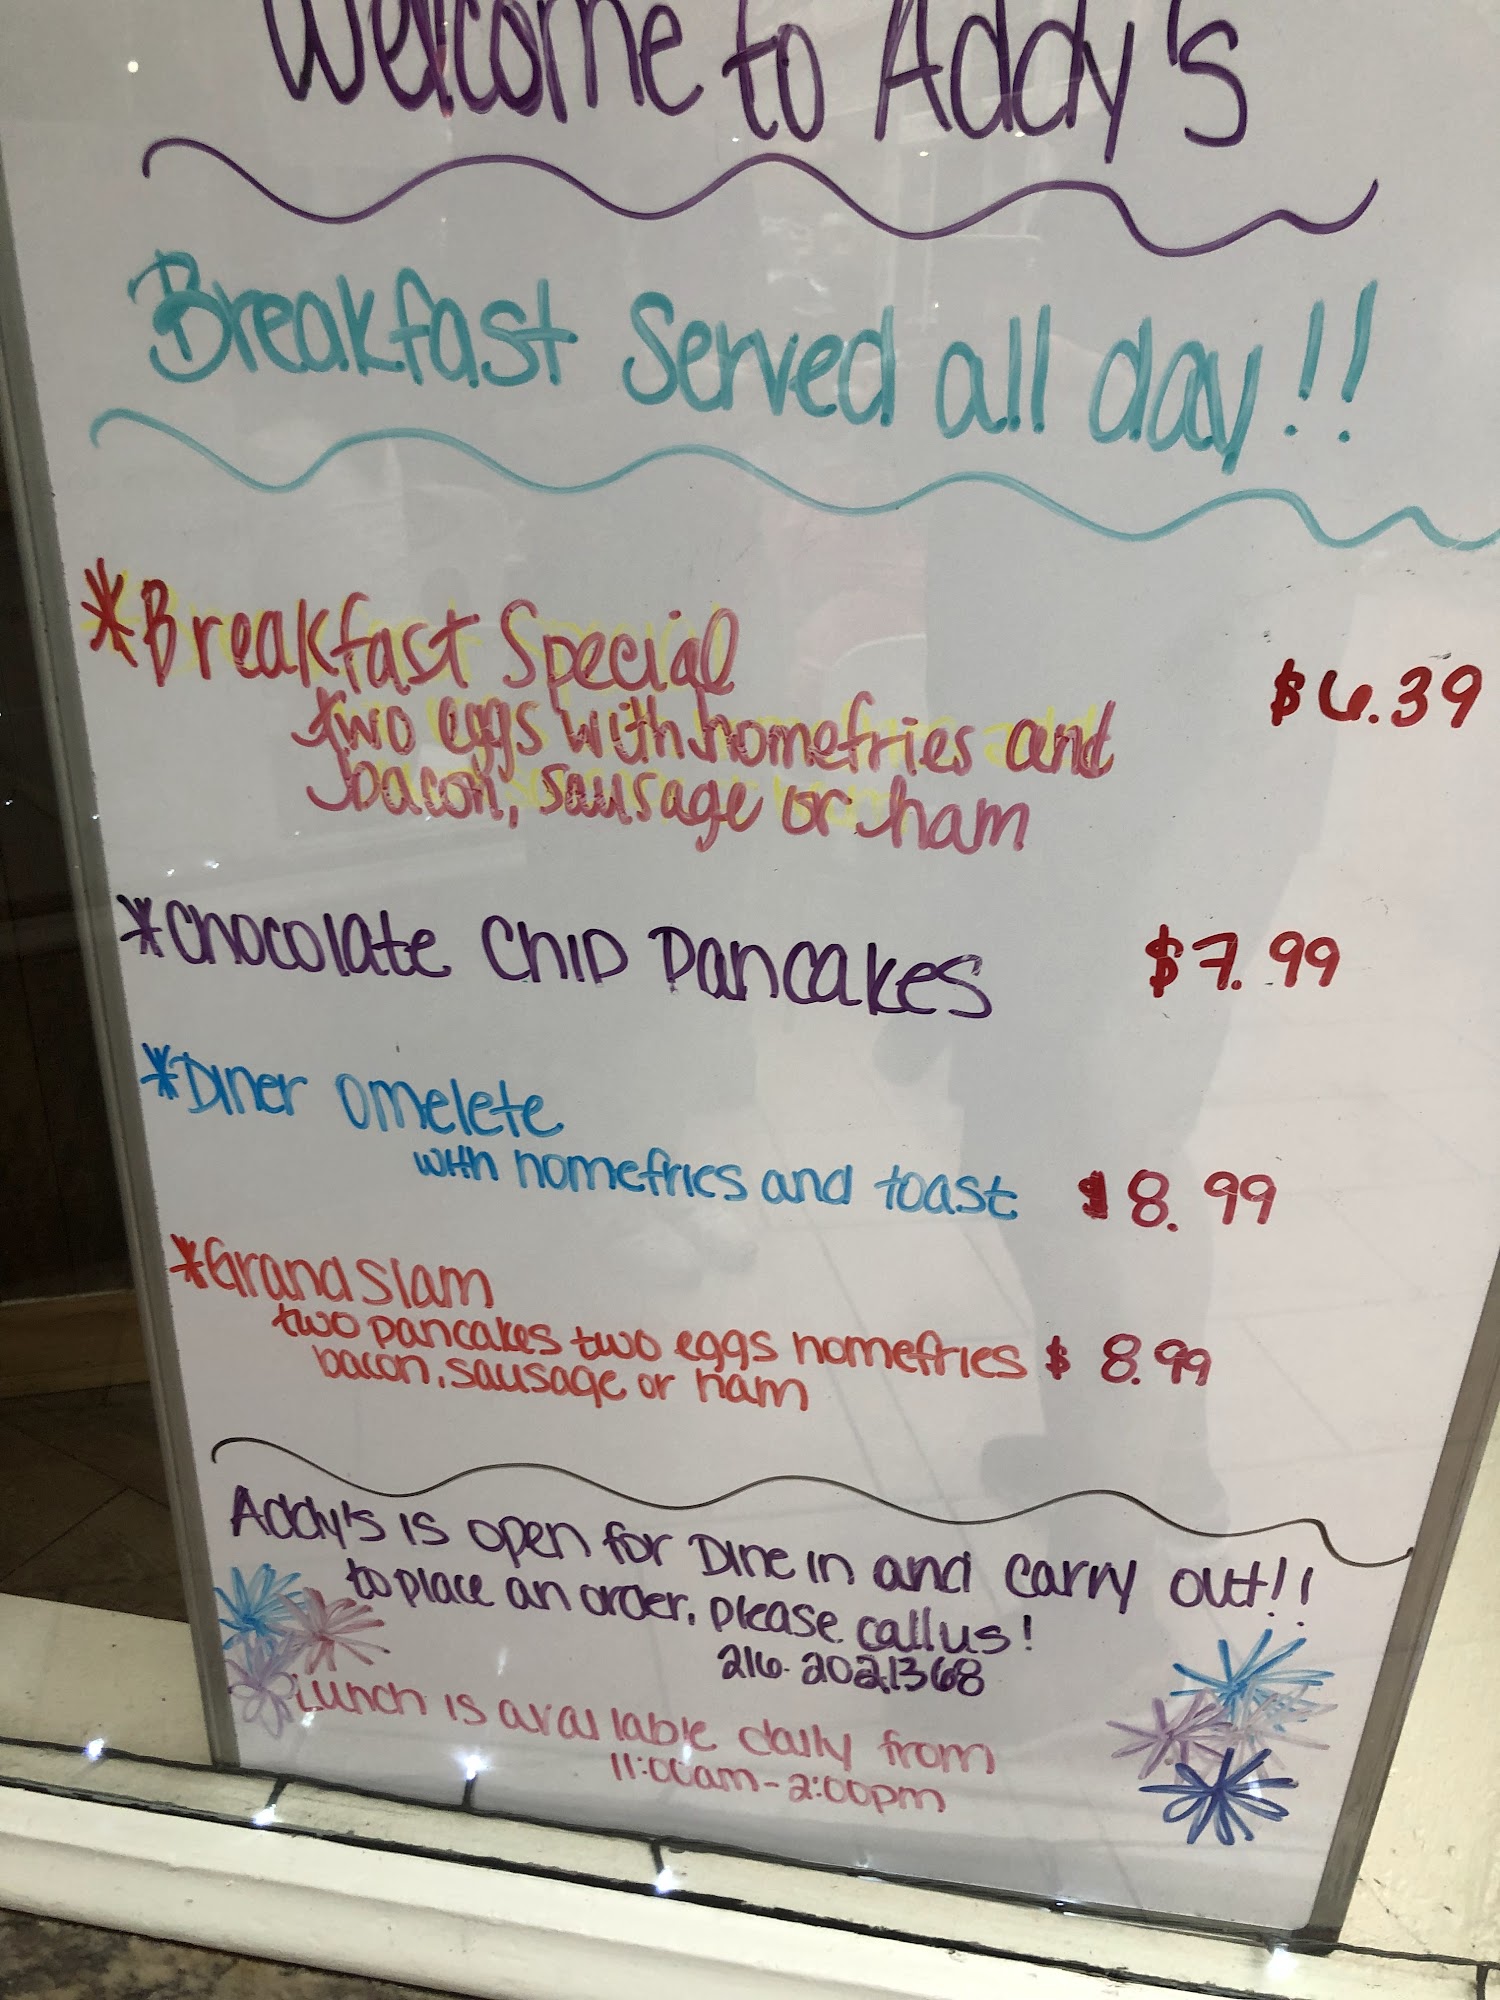 Welcome to Addy's
Breakfast Served all day!!
*Breakfast Special
two eggs with homefries and $6.39
bacon, sausage or ham
*Chocolate Chip Pancakes $7.99
*Diner omelete
with homefries and toast $8.99
*Grand Slam
two pancakes two eggs homefries $8.99
bacon, sausage or ham
Addy's is open for Dine in and carry out!!
to place an order, please call us!
216-202-1368
Lunch is available daily from
11:00am-2:00pm